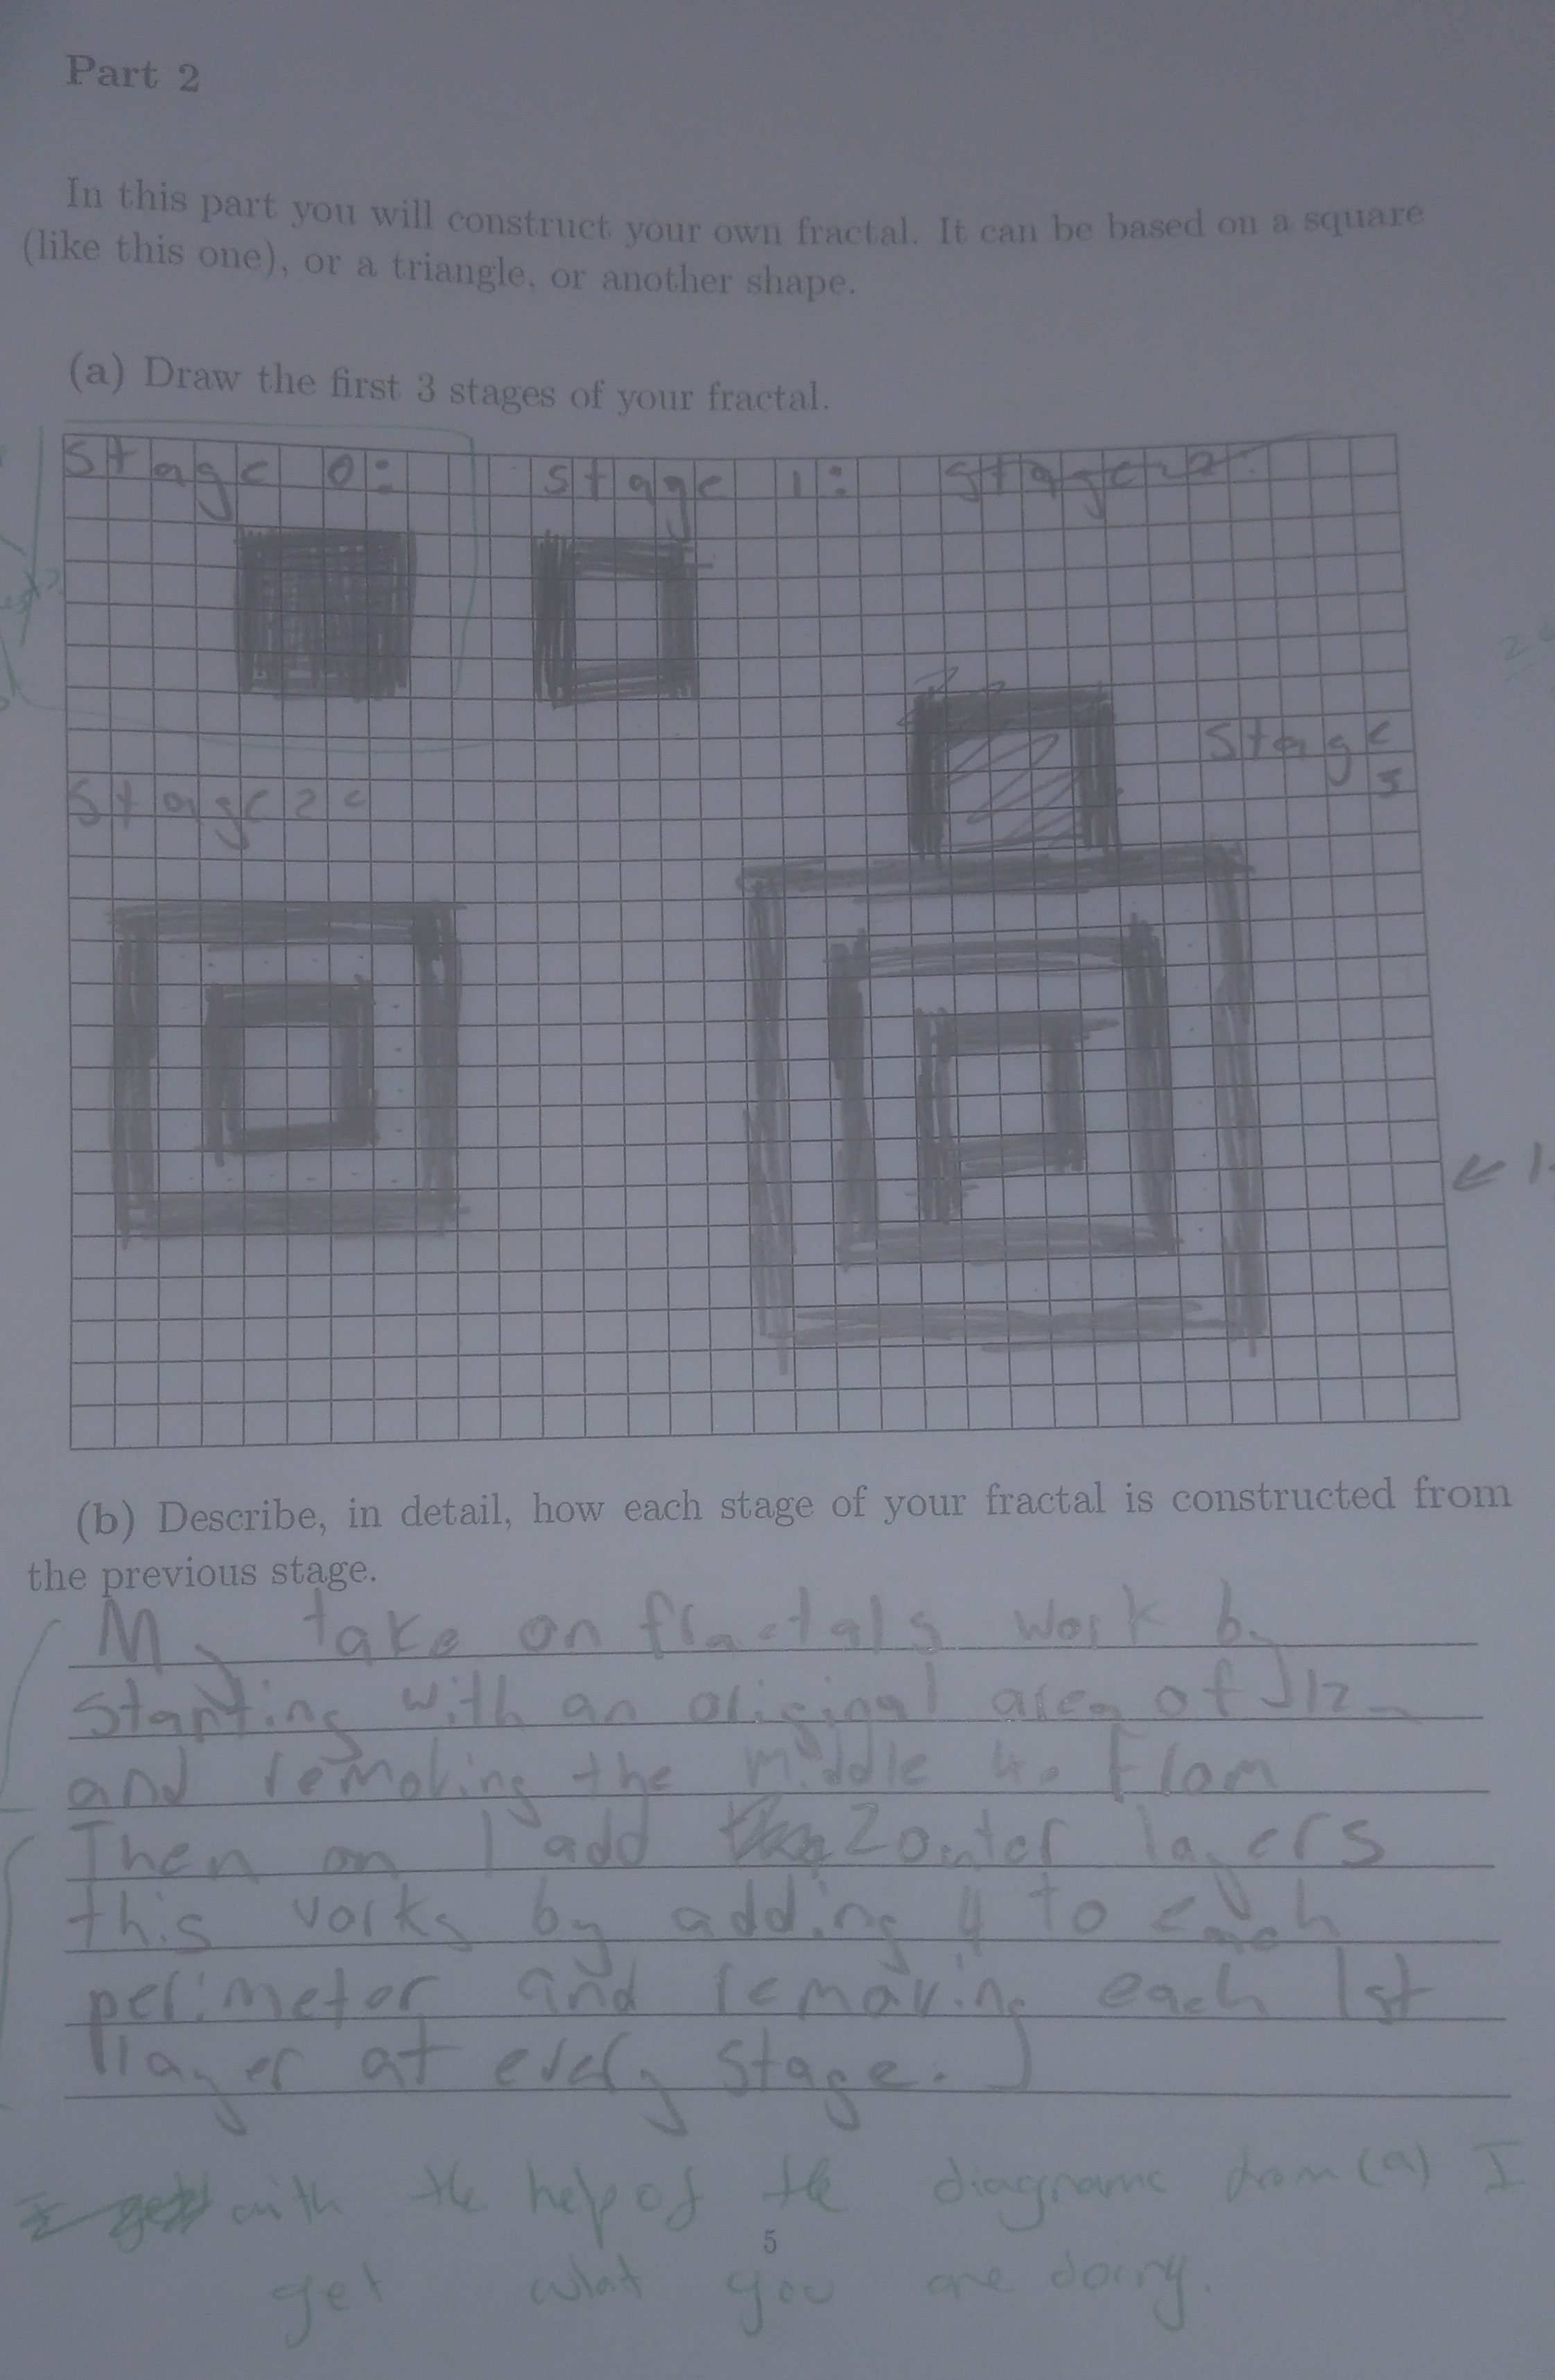 Part 2
In this part you will construct your own fractal. It can be based on a square
(like this one), or a triangle, or another shape.
(a) Draw the first 3 stages of your fractal.
Stage 0: Stage 1: Stage 2:
Stage
3
Stage 2:
(b) Describe, in detail, how each stage of your fractal is constructed from
the previous stage.
My take on fractals work by
starting with an original area of
and removing the middle 4. From
Then on I add 2 outer layers
this works by adding 4 to each
perimeter and removing each 1st
layer at every stage.
with the help of the diagrams from (a) I
5
get what you are doing.